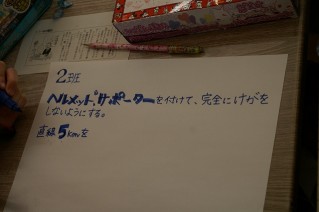 2班
ヘルメット、サポーターを付けて、完全にけがを
しないようにする。
直線5kmを